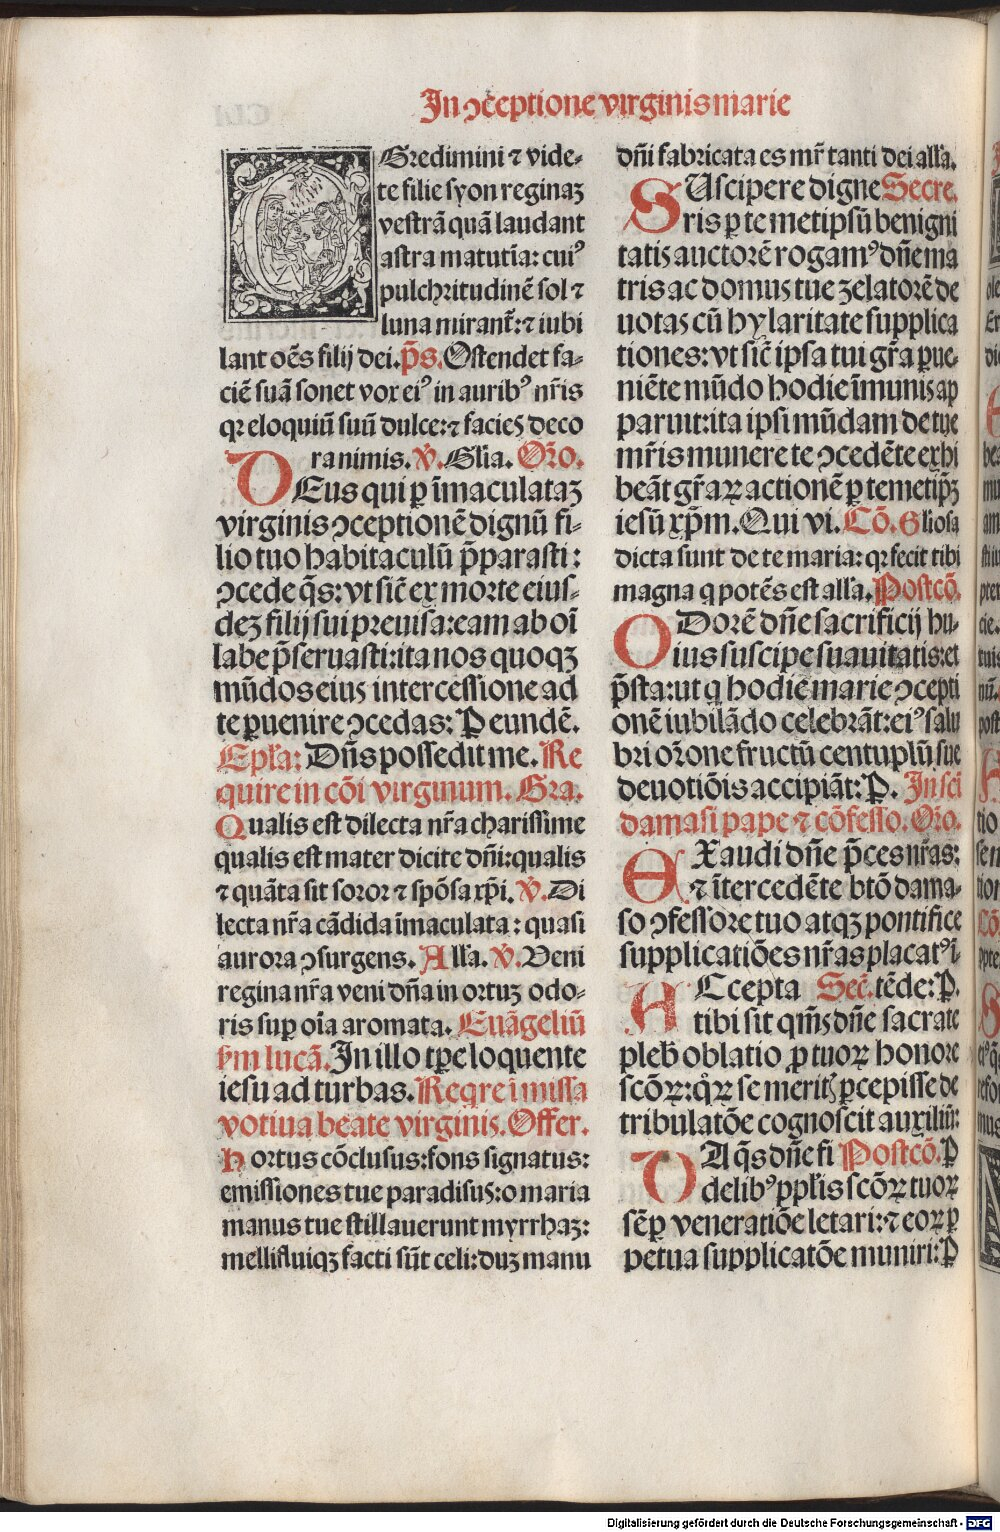 In ↄceptione virginis marie
EGredimini ⁊ vide⸗
te filie syon reginaꝫ
vestrā quā laudant
astra matutīa: cuiꝰ
pulchritudinē sol ⁊
luna mirant̄: ⁊ iubi
lant oēs filij dei. p̄s. Ostendet fa⸗
ciē suā sonet vox eiꝰ in auribꝰ nr̄is
qꝛ eloquiū suū dulce: ⁊ facies deco
ra nimis. v̄. Gl̄ia. Or̄o.
DEus qui ꝑ īmaculataꝫ
virginis ↄceptionē dignū fi⸗
lio tuo habitaculū p̄parasti:
ↄcede q̄s: vt sic̄ ex morte eius⸗
deꝫ filij sui preuisa: eam ab oī
labe p̄seruasti: ita nos quoqꝫ
mūdos eius intercessione ad
te ꝑuenire ↄcedas: P eundē.
Epl̄a: Dn̄s possedit me. Re
quire in cōi virginum. Gra.
Qualis est dilecta nr̄a charissime
qualis est mater dicite dn̄i: qualis
⁊ quāta sit soror ⁊ spōsa xp̄i. v̄. Di
lecta nr̄a cādida īmaculata: quasi
aurora ↄsurgens. All̄a. v̄. Veni
regina nr̄a veni dn̄a in ortuꝫ odo⸗
ris suꝑ oīa aromata. Euāgeliū
ẜm lucā. In illo tꝑe loquente
iesu ad turbas. Reqre ī missa
votiua beate virginis. Offer.
Hortus cōclusus: fons signatus:
emissiones tue paradisus: o maria
manus tue stillauerunt myrrhaꝫ:
mellifluiqꝫ facti sūt celi: duꝫ manu
dn̄i fabricata es mr̄ tanti dei all̄a.
SUscipere digne Secre.
ris ꝑ te metipsū benigni
tatis auctorē rogamꝰ dn̄e ma
tris ac domus tue zelatorē de
uotas cū hylaritate supplica
tiones: vt sic̄ ipsa tui gr̄a ꝑue⸗
niēte mūdo hodie īmunis ap
paruit: ita ipsi mūdam de tue
mr̄is munere te ↄcedēte exhi
beāt gr̄aꝝ actionē ꝑ temetip̄ꝫ
iesū xp̄m. Qui vi. Cō. Gliosa
dicta sunt de te maria: qꝛ fecit tibi
magna q potēs est all̄a. Postcō.
ODorē dn̄e sacrificij hu⸗
ius suscipe suauitatis: et
p̄sta: ut q hodie marie ↄcepti
onē iubilādo celebrāt: eiꝰ salu
bri or̄one fructū centuplū sue
deuotiōis accipiāt: P. In sci
damasi pape ⁊ cōfesso. Or̄o.
EXaudi dn̄e p̄ces nr̄as:
⁊ ītercedēte btō dama⸗
so ↄfessore tuo atqꝫ pontifice
supplicatiōes nr̄as placatꝰ ī⸗
ACcepta Sec̄. tēde: P.
tibi sit qm̄s dn̄e sacrate
pleb̄ oblatio ꝓ tuoꝝ honore
scōꝝ: qͣꝝ se meritꝭ ꝑcepisse de
tribulatōe cognoscit auxiliū:
DA q̄s dn̄e fi Postcō. P
delibꝰ ppl̄is scōꝝ tuoꝝ
sēꝑ veneratiōe letari: ⁊ eoꝝ ꝑ
petua supplicatōe muniri: P
Digitalisierung gefördert durch die Deutsche Forschungsgemeinschaft - DFG